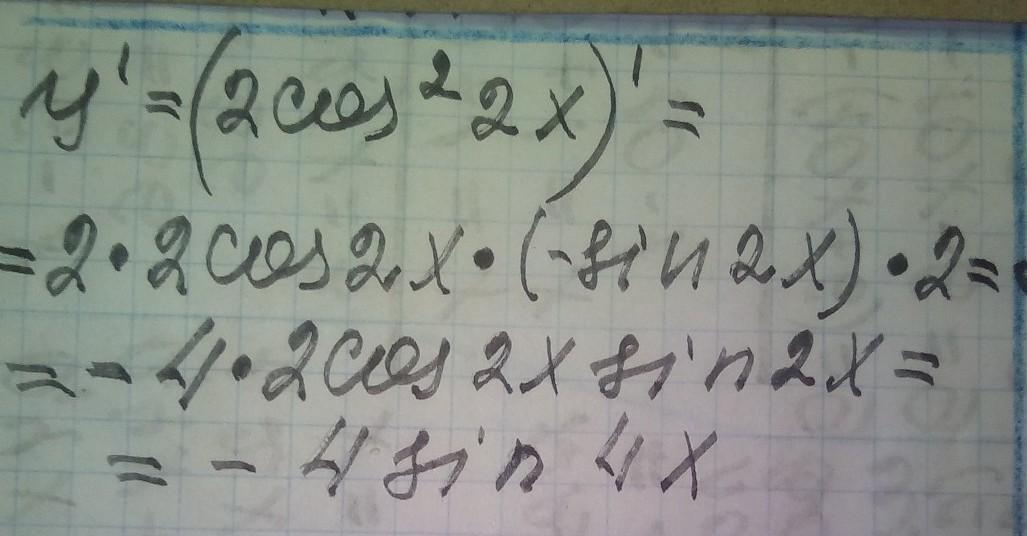 y' = (2cos² 2x)' =
= 2 · 2cos2x · (-sin2x) · 2 =
= - 4 · 2cos2x sin2x =
= - 4 sin 4x